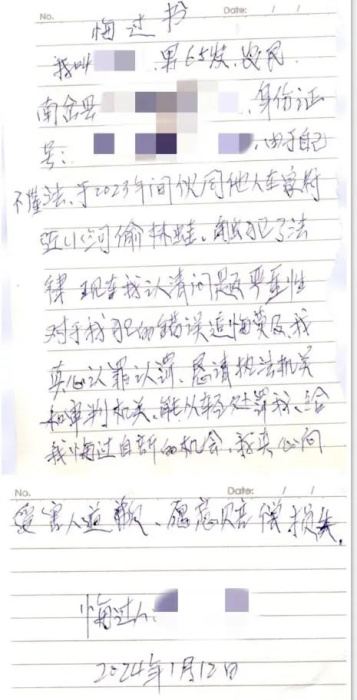 No. Date: / /
悔过书
我叫 男65岁、农民
南岔县 身份证
号: ,由于自己
不懂法、于2023年间伙同他人在
河偷林蛙、犯了法
律 现在我认清问题严重性
对于我犯的错误追悔莫及,我
真心认罪认罚、恳请执法机关
和审判机关、能从轻处罚我、给
我悔过自新的机会、我真心向
No. Date: / /
受害人道歉、愿意赔偿损失.
悔过人:
2024年1月12日